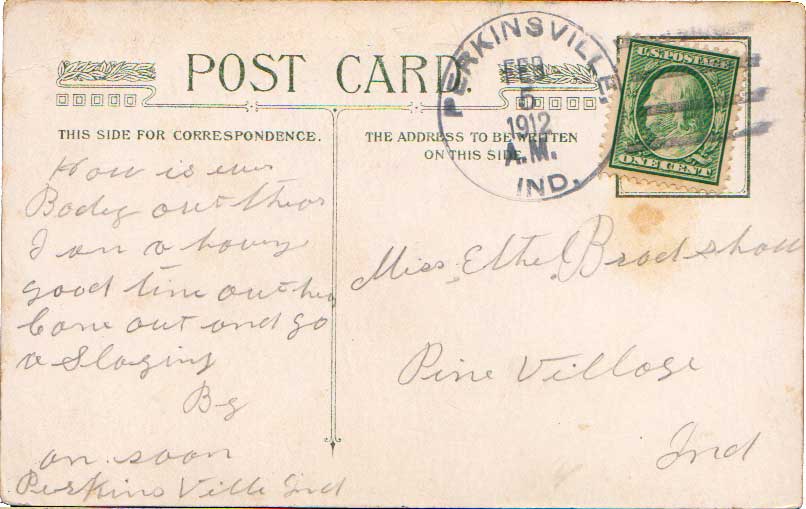 POST CARD.
PERKINSVILLE, IND.
FEB
5
1912
A.M.
U.S. POSTAGE
ONE CENT
THIS SIDE FOR CORRESPONDENCE.
THE ADDRESS TO BE WRITTEN
ON THIS SIDE
How is ever
Body out thear
I am a haveing
good time out her
Come out and go
a Slaging
By
an soon
Perkins Ville Ind
Miss Ethel Bradshaw
Pine Village
Ind